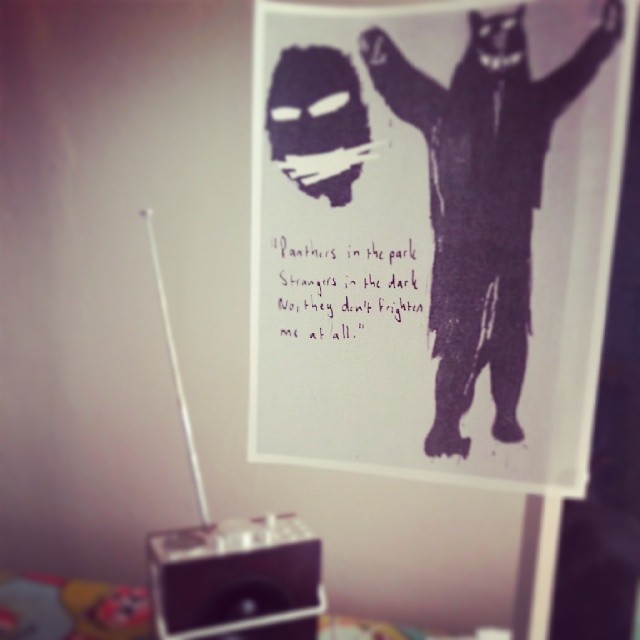 "Panthers in the park
Strangers in the dark
No, they don't frighten
me at all."